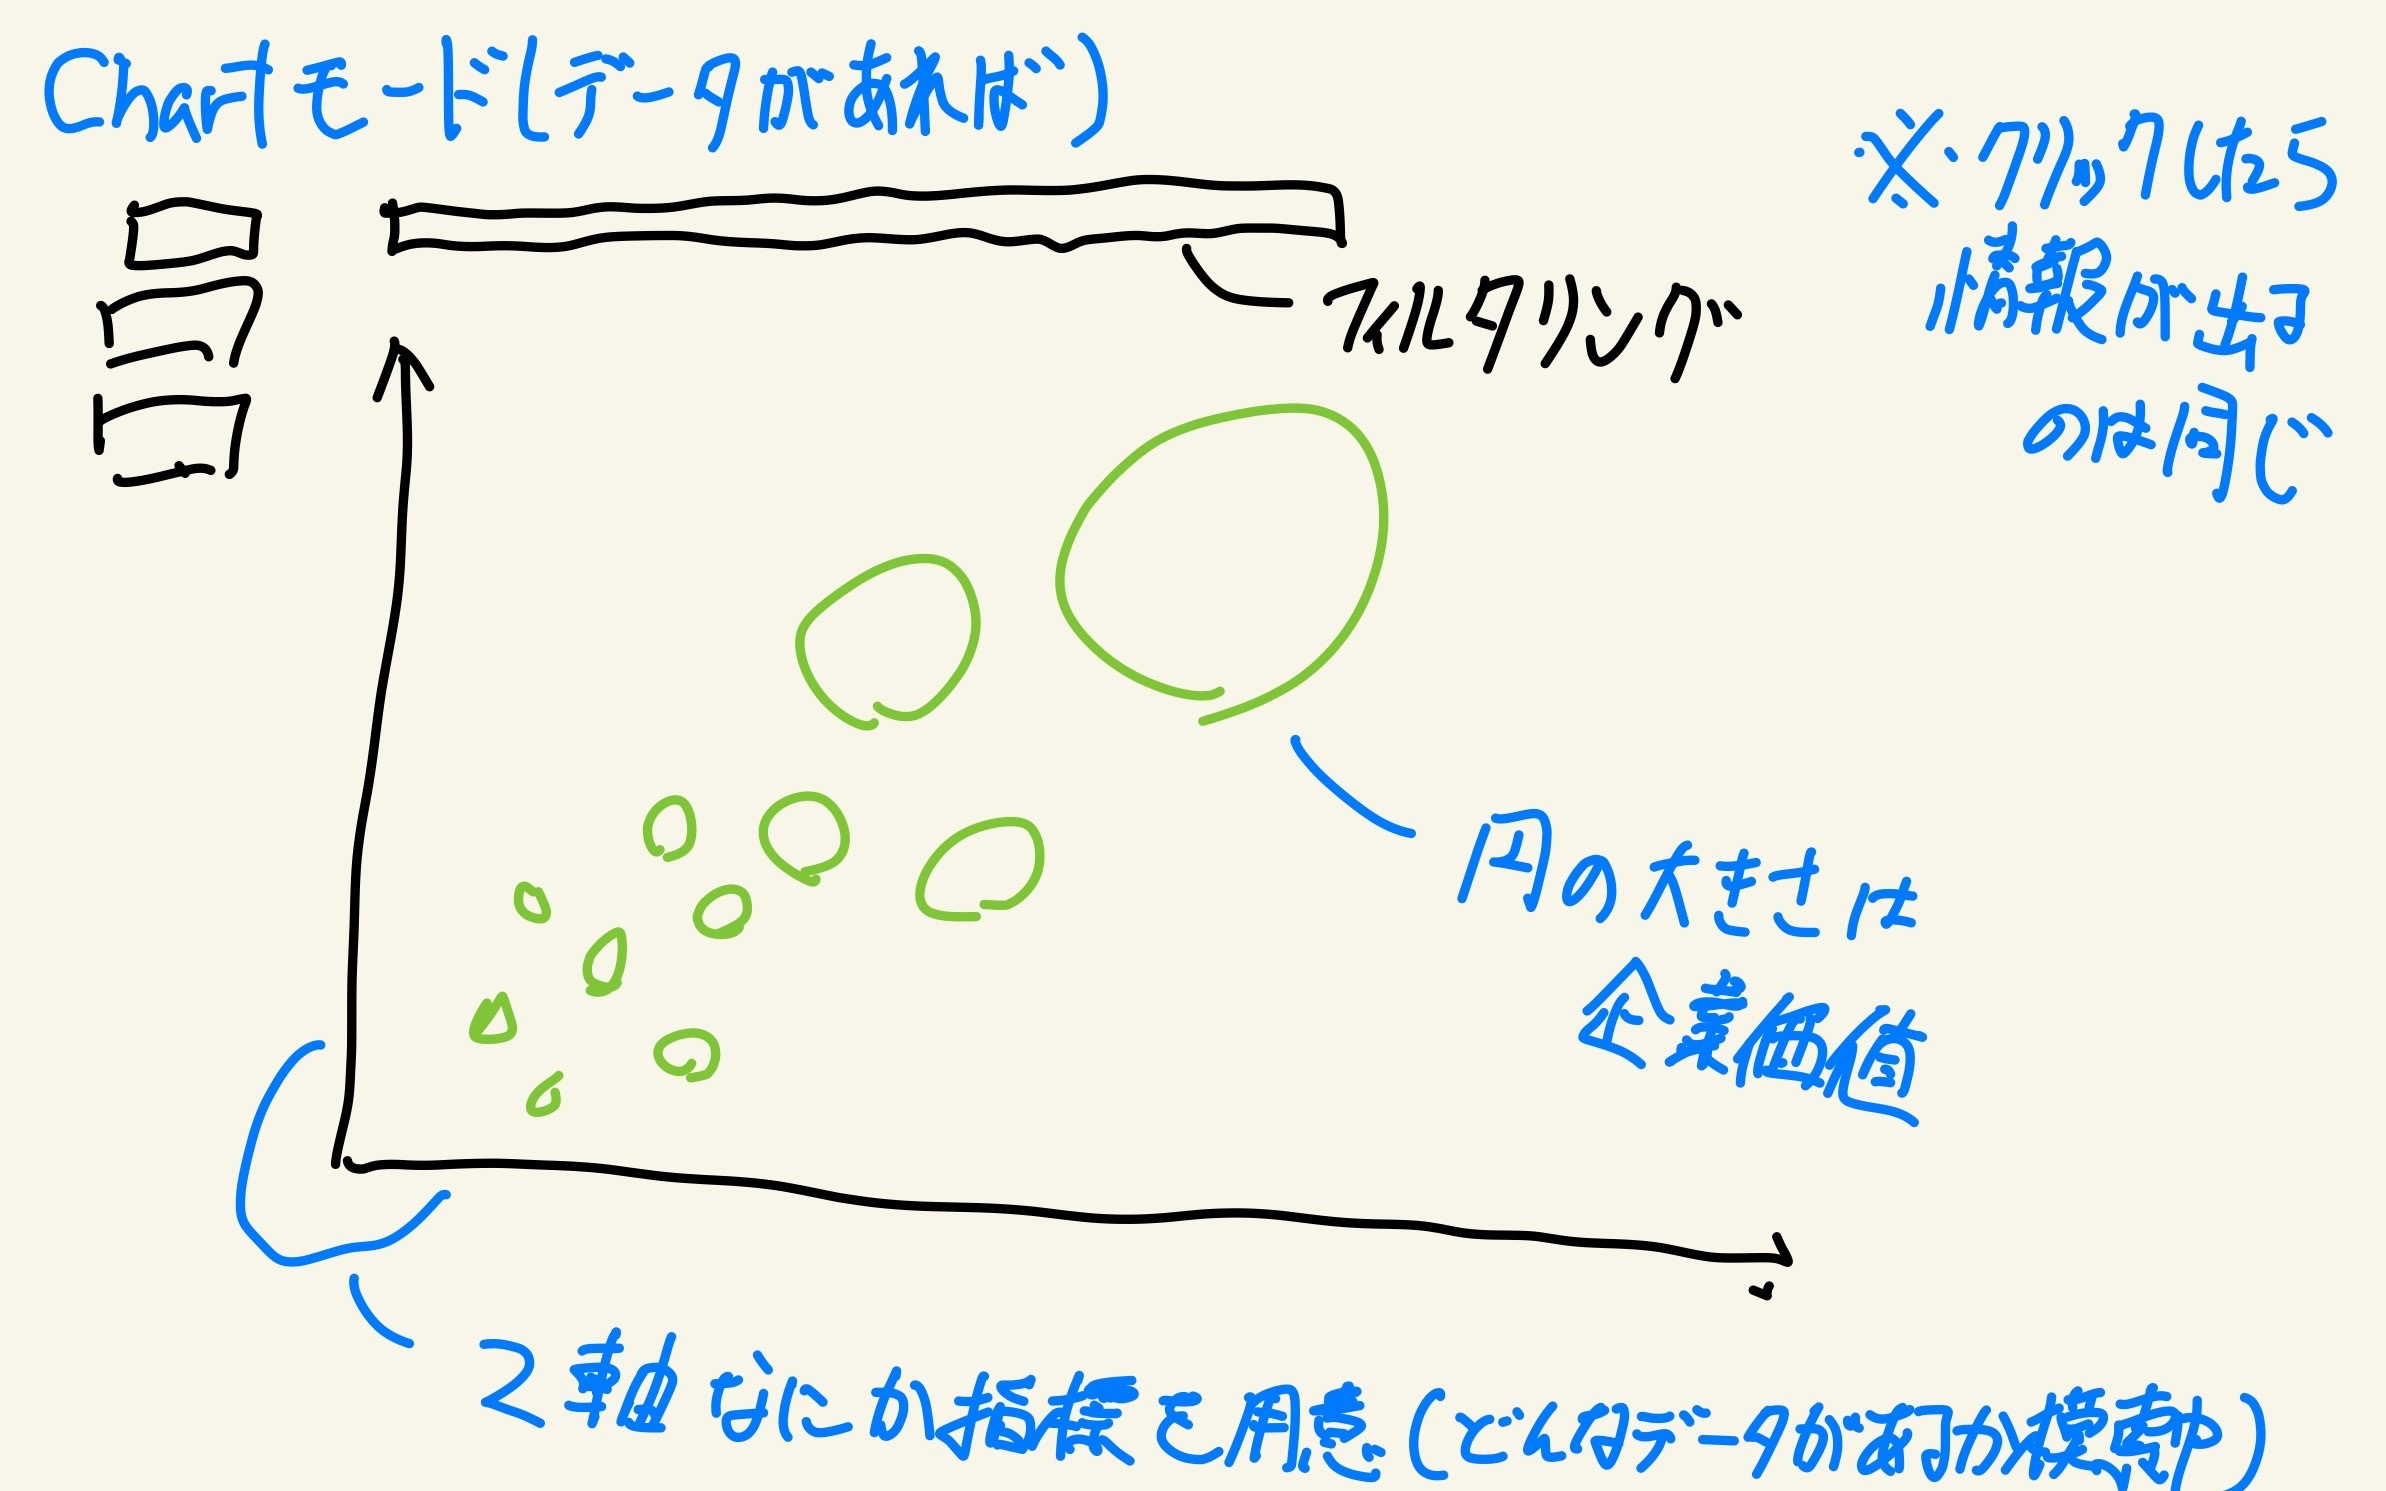 Chartモード(データがあれば)
※クリックしたら
情報が出る
のは同じ
フィルタリング
円の大きさは
企業価値
2軸なにか指標を用意(どんなデータがあるか模索中)